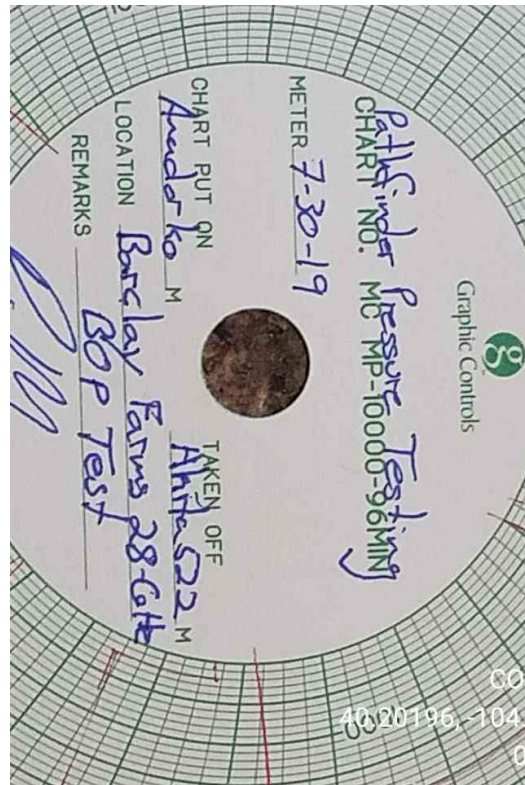 g
Graphic Controls
Pathfinder Pressure Testing
CHART NO. MC MP-10000-96MIN
METER 7-30-19
CHART PUT ON
TAKEN OFF
Anadarko M
M
LOCATION Barclay Farms 28-
REMARKS BOP Test
CO
40.20196, -104.